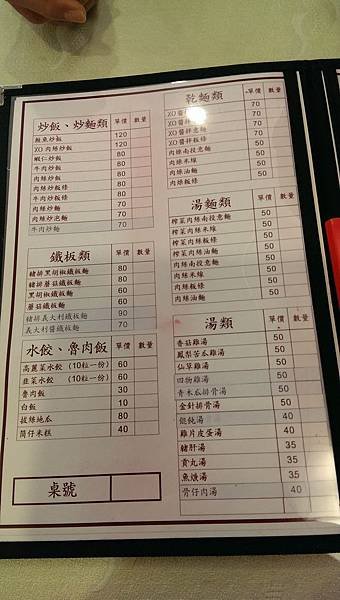 炒飯、炒麵類 單價 數量
鮭魚炒飯 120
XO肉絲炒飯 120
蝦仁炒飯 80
牛肉炒飯 80
肉絲炒飯 80
牛肉炒粄條 80
肉絲炒粄條 80
牛肉炒麵 70
肉絲炒泡麵 70
牛肉炒麵 70
鐵板類 單價 數量
豬排黑胡椒鐵板麵 80
豬排蘑菇鐵板麵 80
黑胡椒鐵板麵 60
蘑菇鐵板麵 60
豬排義大利鐵板麵 90
義大利醬鐵板麵 70
水餃、魯肉飯 單價 數量
高麗菜水餃 (10粒一份) 60
韭菜水餃 (10粒一份) 60
魯肉飯 30
白飯 10
拔絲地瓜 80
筒仔米糕 40
桌號
乾麵類 單價 數量
XO醬 70
XO醬拌 70
XO醬拌意麵 70
XO醬拌粄條 70
肉絲南投意麵 50
肉絲米線 50
肉絲油麵 50
肉絲粄條 50
湯麵類 單價 數量
榨菜肉絲南投意麵 50
榨菜肉絲米線 50
榨菜肉絲粄條 50
榨菜肉絲油麵 50
肉絲南投意麵 50
肉絲米線 50
肉絲粄條 50
肉絲油麵 50
湯類 單價 數量
香菇雞湯 50
鳳梨苦瓜雞湯 50
仙草雞湯 50
四物雞湯 50
青木瓜排骨湯 50
金針排骨湯 50
餛飩湯 40
雞片皮蛋湯 40
豬肝湯 35
貢丸湯 35
魚燻湯 35
骨仔肉湯 40